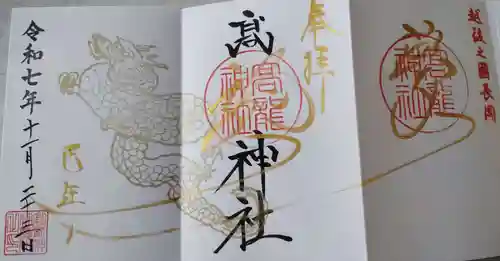 越後之國長岡
高龍
神社
奉拝
髙
神社
高龍
神社
巳年
令和七年十一月二十三日